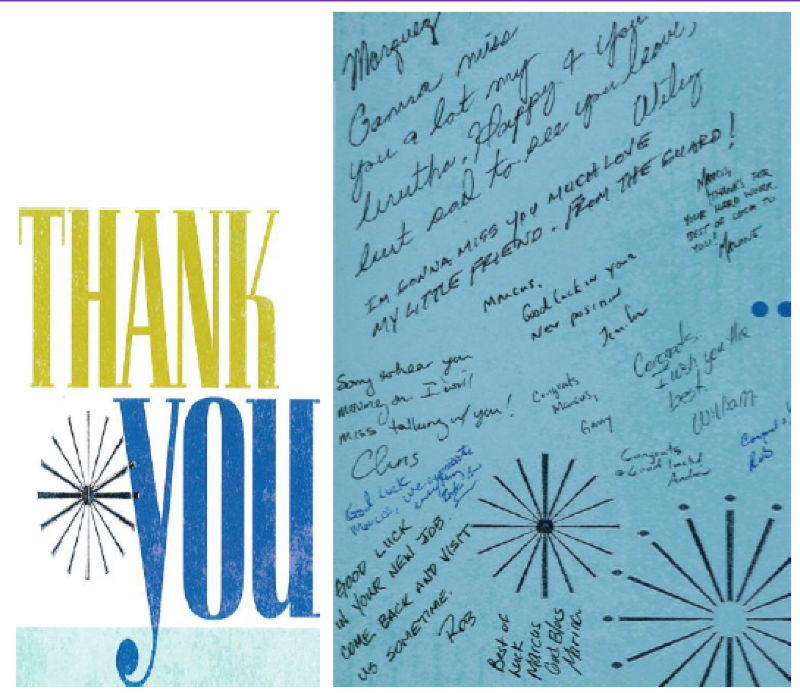 THANK
YOU
Marquez
Gonna miss
you a lot my
brutha. Happy & you
but sad to see you leave,
Wiley
IM GONNA MISS YOU MUCH LOVE
MY LITTLE FRIEND. FROM THE GUARD!
MARCUS,
THANKS FOR
YOUR HARD WORK.
BEST OF LUCK TO
YOU!
MARCUS,
Good luck in your
New position
Sorry to hear you
moving on. I will
miss talking w/ you!
Chris
Congrats
Marcus,
Gary
Congrats
I wish you the
best
William
Congrats
& Good luck!
Andrew
Rob
Good Luck
Marcus, we appreciate
everything
GOOD LUCK
IN YOUR NEW JOB.
COME BACK AND VISIT
US SOMETIME.
ROB
Best of
Luck
MARCUS
God Bless